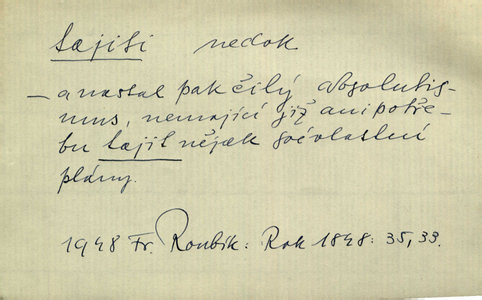 tajiti nedok
– a nastal pak čilý absolutis-
mus, nemající již ani potře-
bu tajit nějak své vlastní
plány.
1948 Fr. Roubík: Rok 1848: 35, 33.